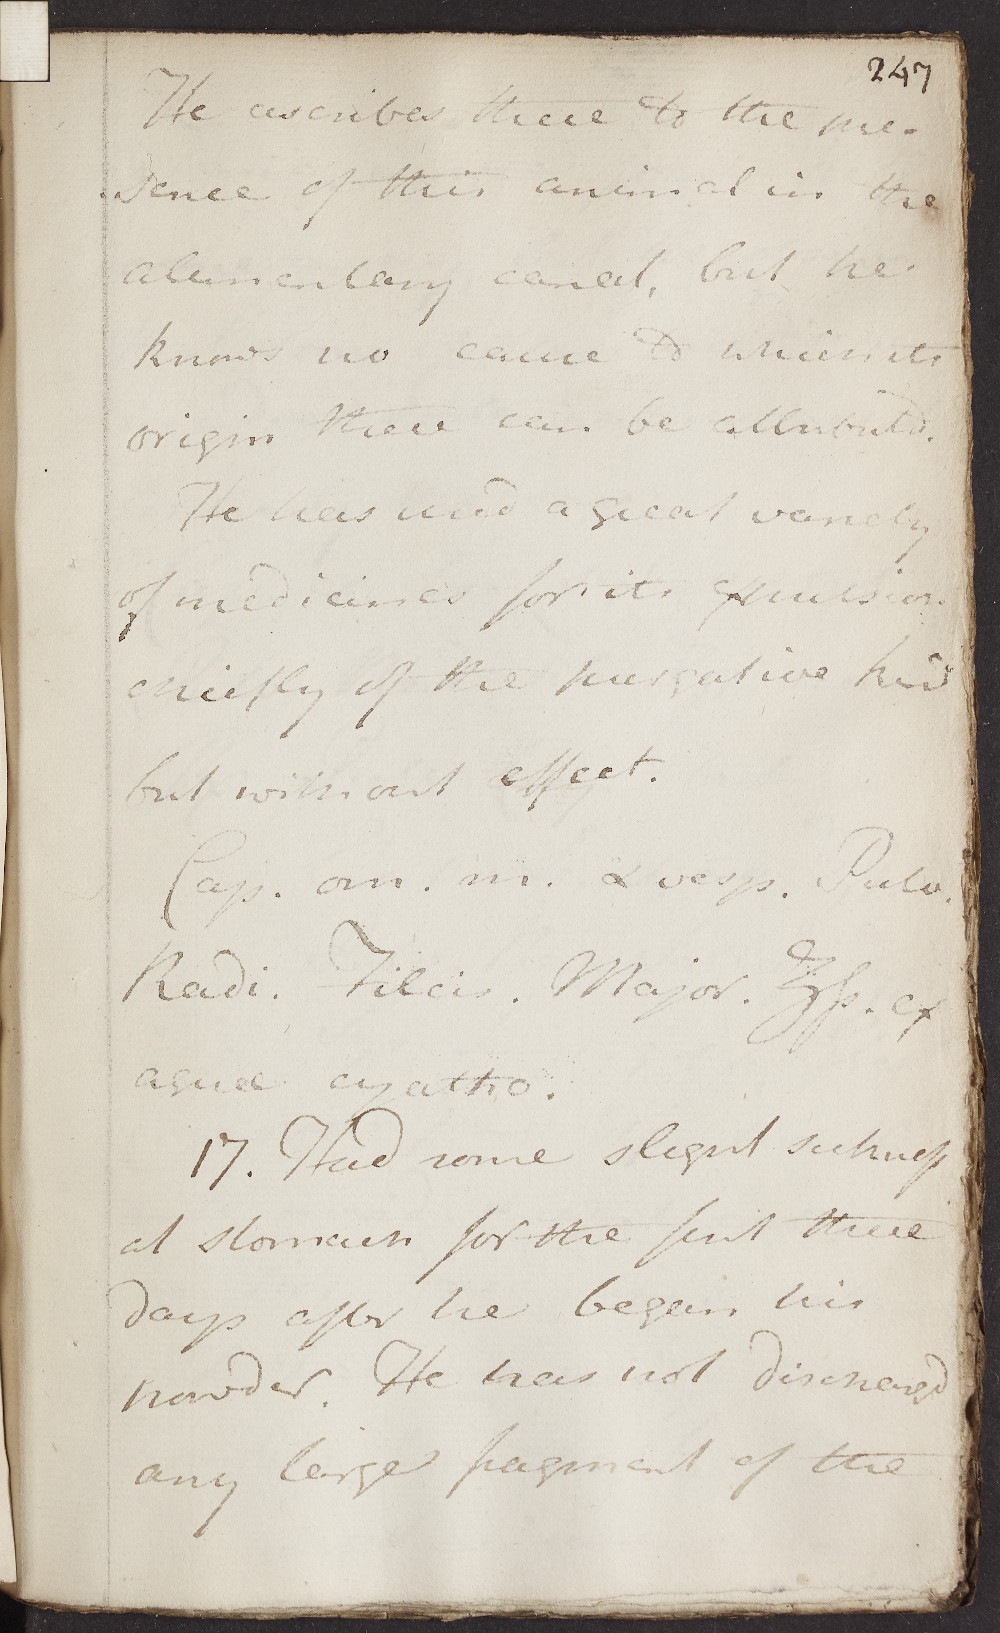 247
He ascribes these to the pre-
sence of this animal in the
alimentary canal, but he
knows no cause to which its
origin there can be attributd.
He has used a great variety
of medicines for its expulsion
chiefly of the purgative kind
but without effect.
Cap. om. m. & vesp. Pulv.
Radi. Filicis. Major. ℥ſs. ex
aquæ cyatho.
17. Had some slight sickneſs
at stomach for the first three
days after he began his
powder. He has not discharged
any large fragment of the